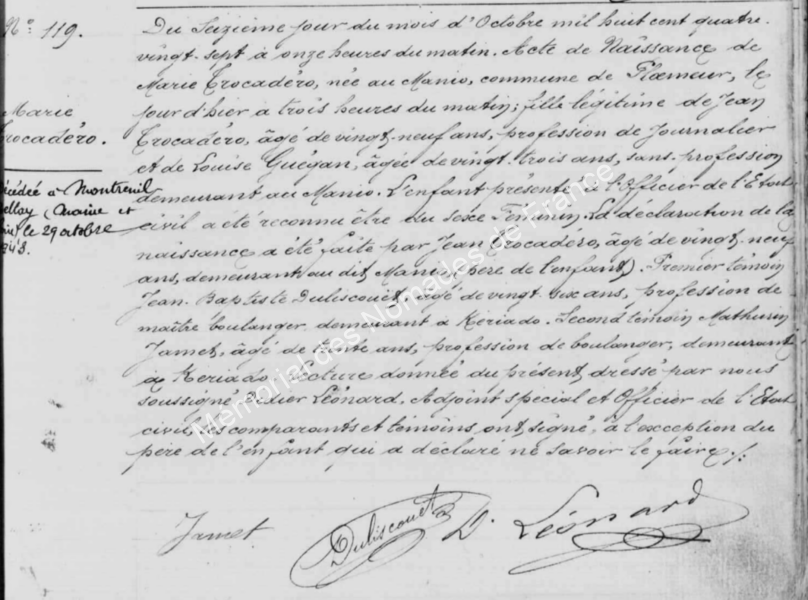 N° 119.
Marie
Trocadéro.
décédée à Montreuil
Bellay (Maine et
le 29 octobre
Du Seizième jour du mois d'Octobre mil huit cent quatre-
vingt-sept à onze heures du matin. Acte de Naissance de
Marie Trocadéro, née au Manio, commune de Plœmeur, le
jour d'hier à trois heures du matin; fille légitime de Jean
Trocadéro, âgé de vingt-neuf ans, profession de Journalier
et de Louise Guégan, âgée de vingt-trois ans, sans profession
demeurant au Manio. L'enfant présenté à l'Officier de l'Etat
civil a été reconnu être du sexe Féminin. La déclaration de la
naissance a été faite par Jean Trocadéro, âgé de vingt-neuf
ans, demeurant au dit Manio (père de l'enfant). Premier témoin
Jean-Baptiste Duliscouet, âgé de vingt-six ans, profession de
maître boulanger demeurant à Keriado. Second témoin Mathurin
Jamet, âgé de trente ans, profession de boulanger, demeurant
à Keriado. Lecture donnée du présent, dressé par nous
soussigné Didier Léonard, Adjoint spécial et Officier de l'Etat
civil, les comparants et témoins ont signé, à l'exception du
père de l'enfant qui a déclaré ne savoir le faire ./.
Jamet Duliscouet D. Léonard
Memorial des Nomades de France